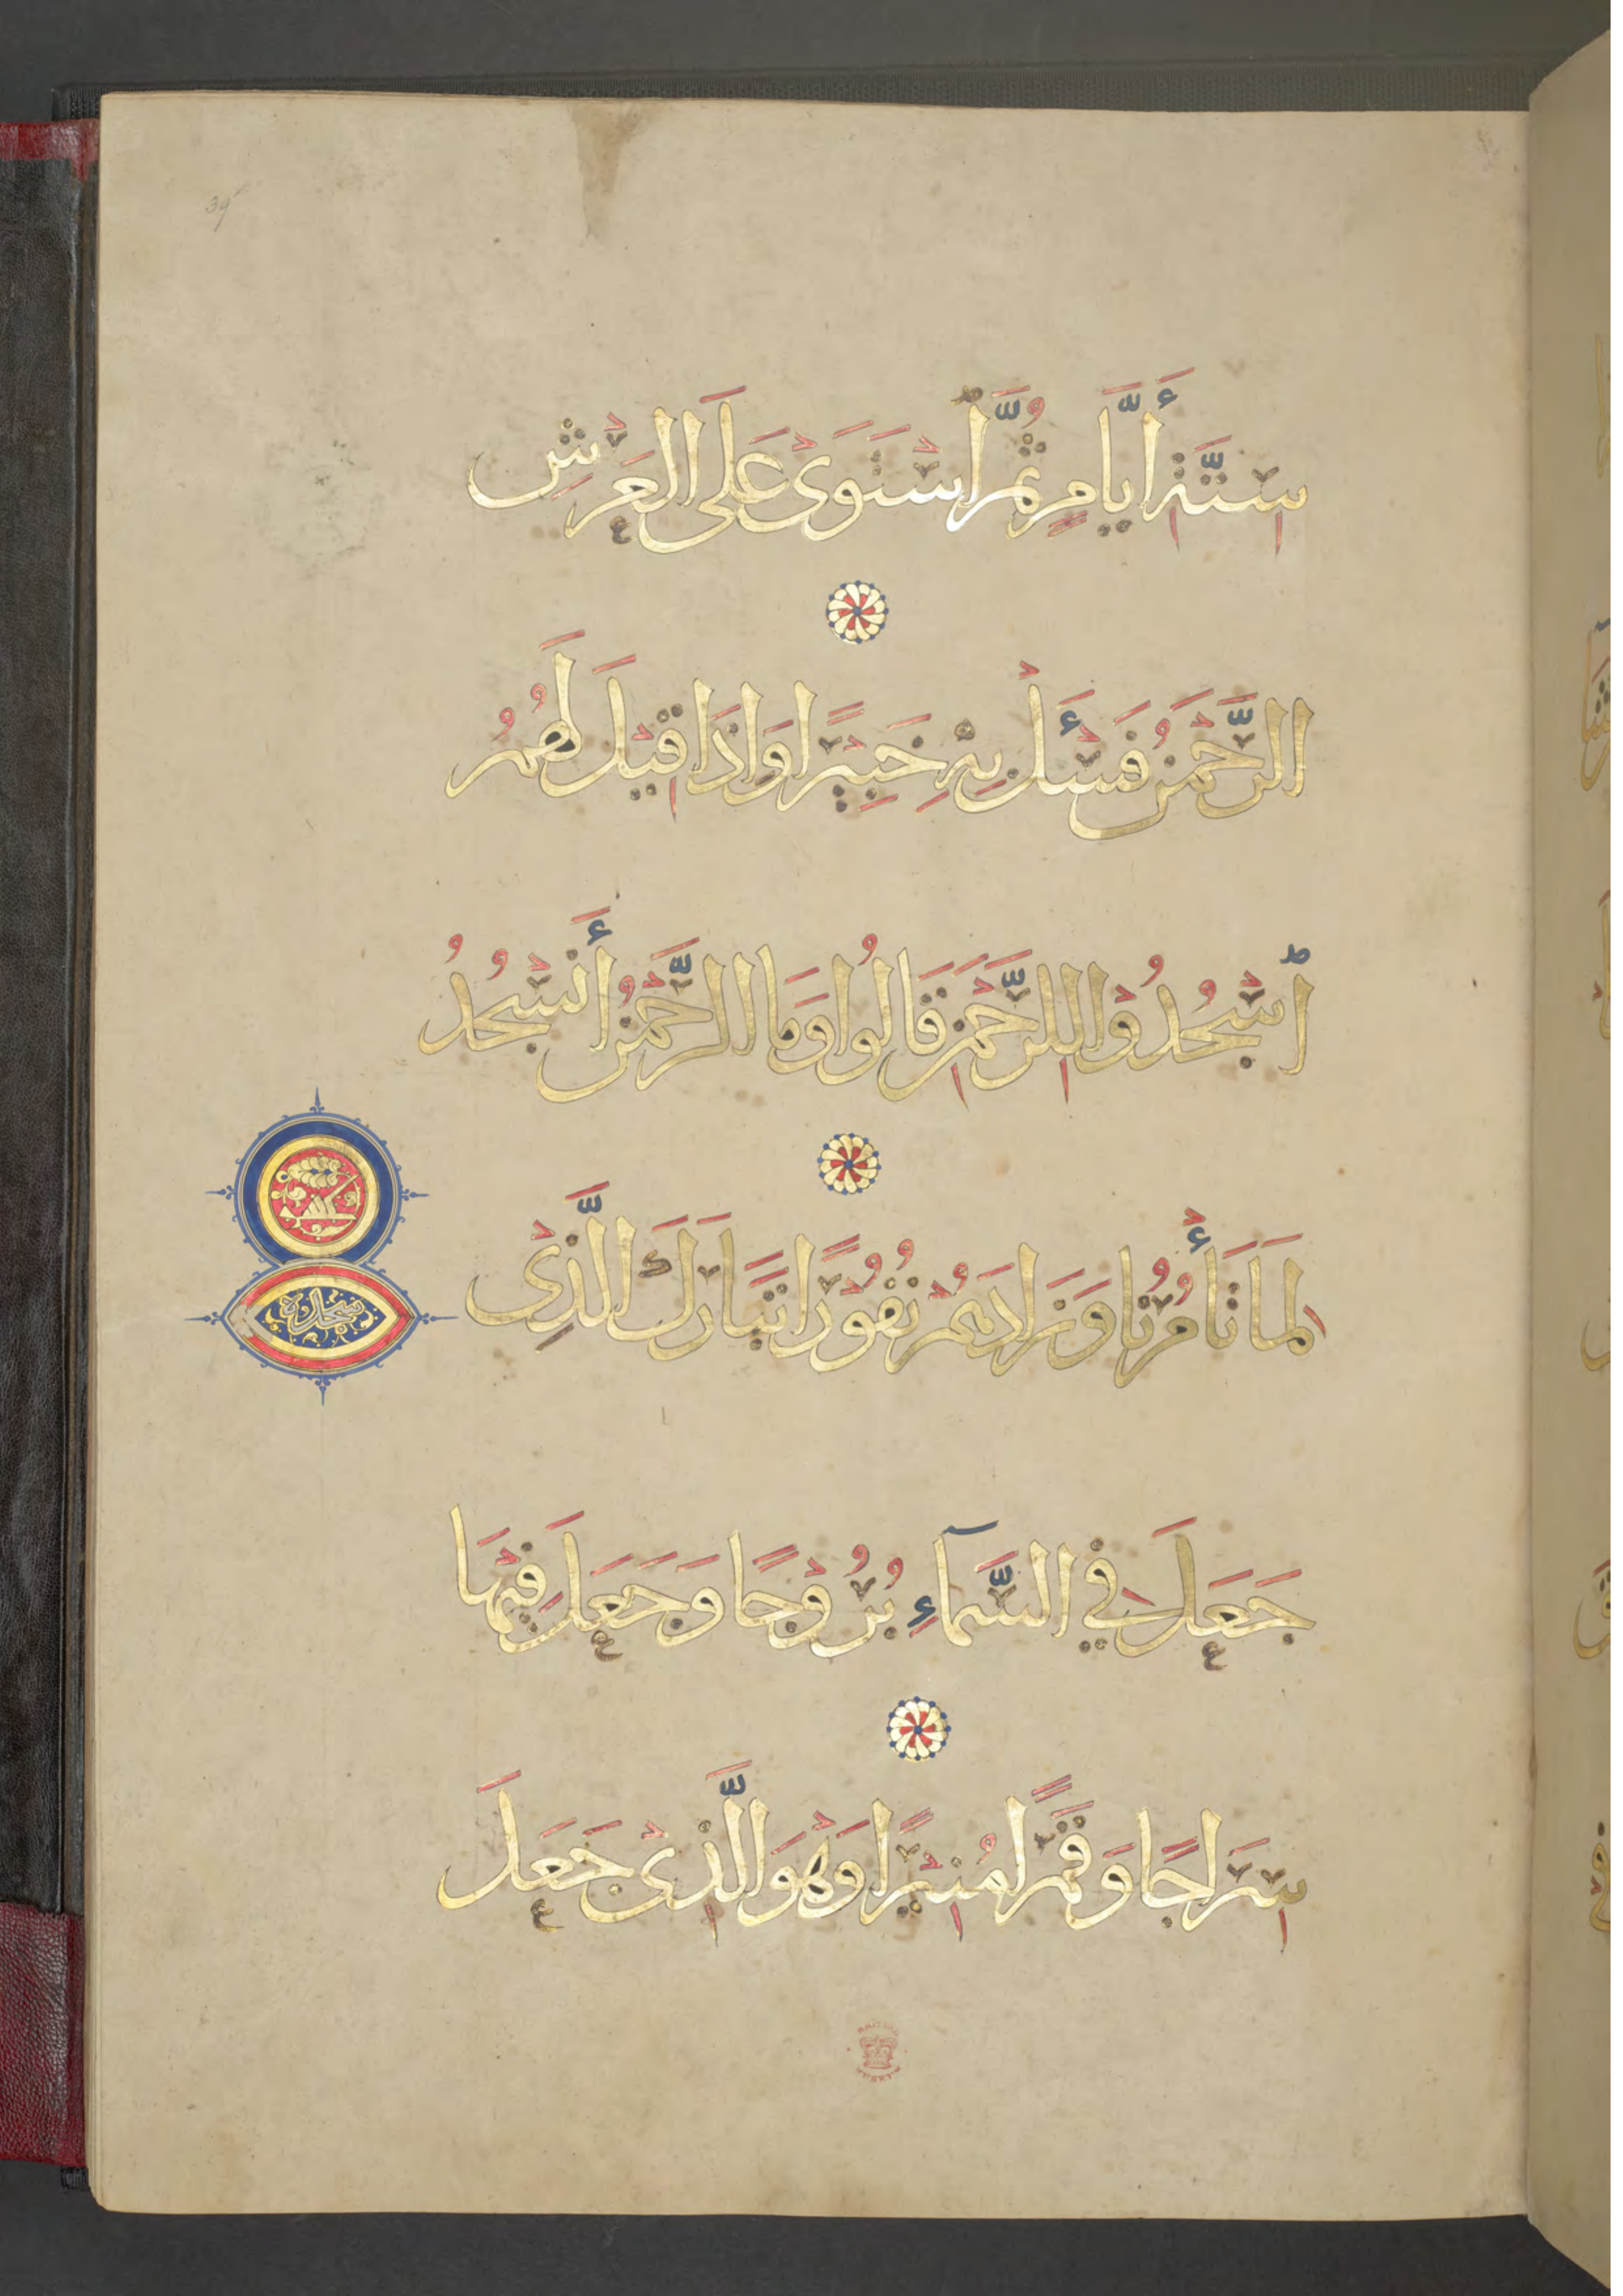 سِتَّةِ أَيَّامٍ ثُمَّ ٱسْتَوَىٰ عَلَى الْعَرْشِ
الرَّحْمَنُ فَسْـَٔلْ بِهِ خَبِيْرًا وَاِذَا قِيْلَ لَهُمُ
ٱسْجُدُوْا لِلرَّحْمَنِ قَالُوا وَمَا الرَّحْمَنُ أَنَسْجُدُ
لِمَا تَأْمُرُنَا وَزَادَهُمْ نُفُوْرًا تَبَارَكَ الَّذِىْ
جَعَلَ فِي السَّمَآءِ بُرُوْجًا وَجَعَلَ فِيْهَا
سِرَاجًا وَقَمَرًا مُنِيْرًا وَهْوَ الَّذِىْ جَعَلَ
سجدة
39
BRITISH MUSEUM